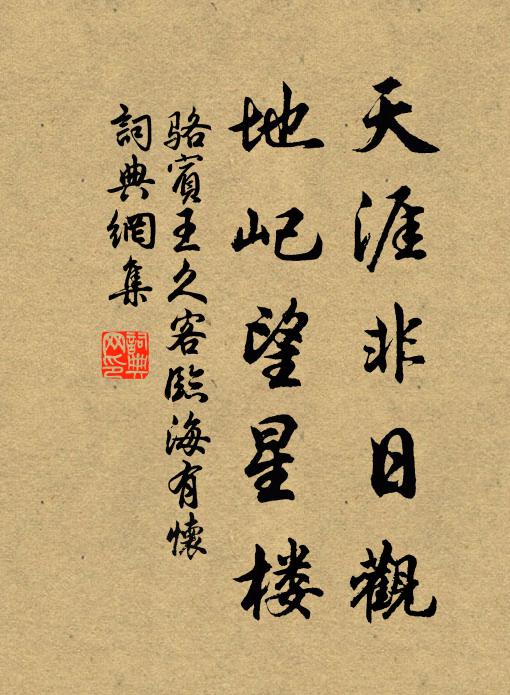 天涯非日觀
地屺望星楼
骆賓王久客臨海有懷
詞典網集
詞典網印